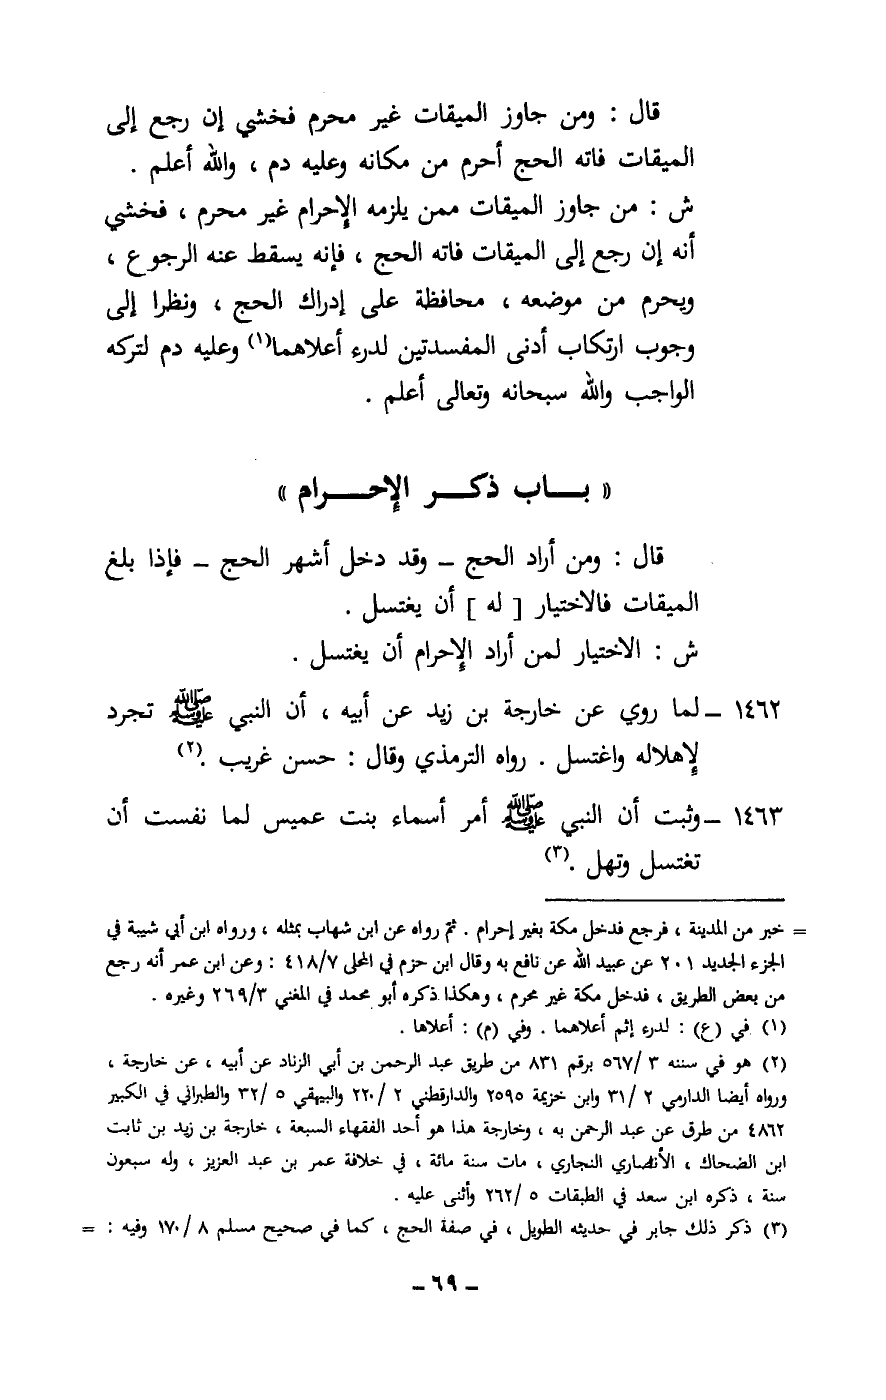 قال : ومن جاوز الميقات غير محرم فخشي إن رجع إلى
الميقات فاته الحج أحرم من مكانه وعليه دم ، والله أعلم .
ش : من جاوز الميقات ممن يلزمه الإحرام غير محرم ، فخشي
أنه إن رجع إلى الميقات فاته الحج ، فإنه يسقط عنه الرجوع ،
ويحرم من موضعه ، محافظة على إدراك الحج ، ونظرا إلى
وجوب ارتكاب أدنى المفسدتين لدرء أعلاهما(١) وعليه دم لتركه
الواجب والله سبحانه وتعالى أعلم .
« بـــاب ذكـــر الإحـــرام »
قال : ومن أراد الحج ــ وقد دخل أشهر الحج ــ فإذا بلغ
الميقات فالاختيار [ له ] أن يغتسل .
ش : الاختيار لمن أراد الإحرام أن يغتسل .
١٤٦٢ ــ لما روي عن خارجة بن زيد عن أبيه ، أن النبي ﷺ تجرد
لإهلاله واغتسل . رواه الترمذي وقال : حسن غريب .(٢)
١٤٦٣ ــ وثبت أن النبي ﷺ أمر أسماء بنت عميس لما نفست أن
تغتسل وتهل .(٣)
= خبر من المدينة ، فرجع فدخل مكة بغير إحرام . ثم رواه عن ابن شهاب بمثله ، ورواه ابن أبي شيبة في
الجزء الجديد ٢٠١ عن عبيد الله عن نافع به وقال ابن حزم في المحلى ٤١٨/٧ : وعن ابن عمر أنه رجع
من بعض الطريق ، فدخل مكة غير محرم ، وهكذا ذكره أبو محمد في المغني ٢٦٩/٣ وغيره .
(١) في (ع) : لدرء إثم أعلاهما . وفي (م) : أعلاها .
(٢) هو في سننه ٣ /٥٦٧ برقم ٨٣١ من طريق عبد الرحمن بن أبي الزناد عن أبيه ، عن خارجة ،
ورواه أيضا الدارمي ٢ /٣١ وابن خزيمة ٢٥٩٥ والدارقطني ٢ /٢٢٠ والبيهقي ٥ /٣٢ والطبراني في الكبير
٤٨٦٢ من طرق عن عبد الرحمن به ، وخارجة هذا هو أحد الفقهاء السبعة ، خارجة بن زيد بن ثابت
ابن الضحاك ، الأنصاري النجاري ، مات سنة مائة ، في خلافة عمر بن عبد العزيز ، وله سبعون
سنة ، ذكره ابن سعد في الطبقات ٥ /٢٦٢ وأثنى عليه .
(٣) ذكر ذلك جابر في حديثه الطويل ، في صفة الحج ، كما في صحيح مسلم ٨ /١٧٠ وفيه : =
ــ ٦٩ ــ